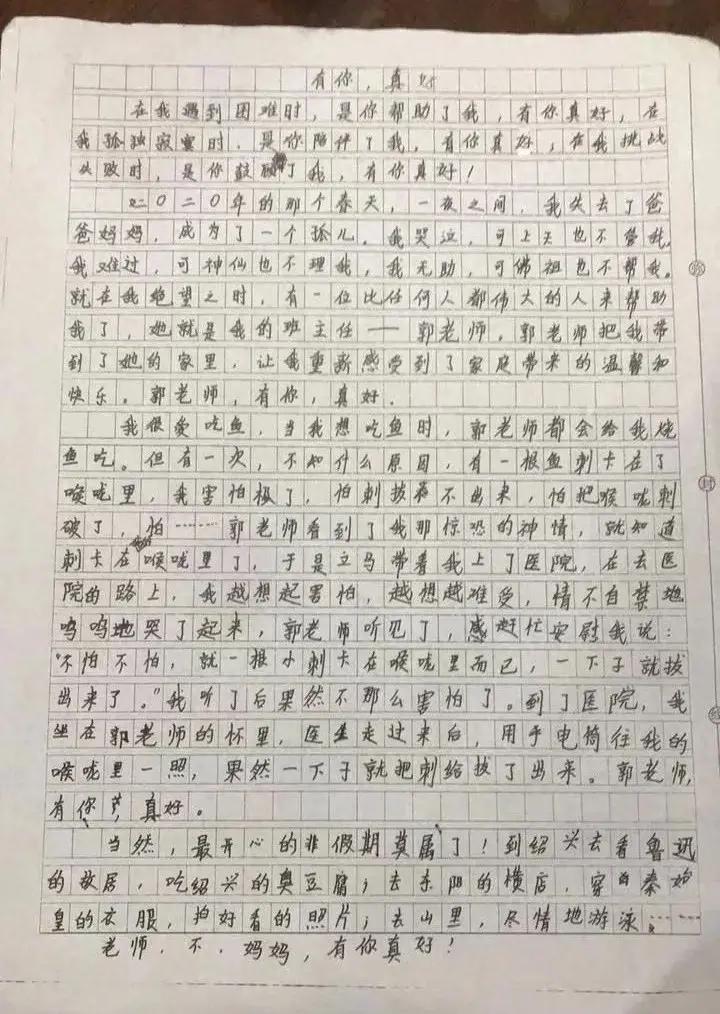 有你，真好
在我遇到困难时，是你帮助了我，有你真好，在
我孤独寂寞时，是你陪伴了我，有你真好，在我挑战
失败时，是你鼓励了我，有你真好！
二〇二〇年的那个春天，一夜之间，我失去了爸
爸妈妈，成为了一个孤儿。我哭泣，可上天也不管我，
我难过，可神仙也不理我，我无助，可佛祖也不帮我。
就在我绝望之时，有一位比任何人都伟大的人来帮助
我了，她就是我的班主任——郭老师，郭老师把我带
到了她的家里，让我重新感受到了家庭带来的温馨和
快乐。郭老师，有你，真好．
我很爱吃鱼，当我想吃鱼时，郭老师都会给我烧
鱼吃。但有一次，不知什么原因，有一根鱼刺卡在了
喉咙里，我害怕极了，怕刺拔不出来，怕把喉咙刺
破了，怕……郭老师看到了我那惊恐的神情，就知道
刺卡在喉咙里了，于是立马带着我上了医院，在去医
院的路上，我越想起害怕，越想越难受，情不自禁地
呜呜地哭了起来，郭老师听见了，感赶忙安慰我说：
“不怕不怕，就一根小刺卡在喉咙里而已，一下子就拔
出来了。”我听了后果然不那么害怕了。到了医院，我
坐在郭老师的怀里，医生走过来后，用手电筒往我的
喉咙里一照，果然一下子就把刺给拔了出来。郭老师，
有你，真好。
当然，最开心的非假期莫属了！到绍兴去看鲁迅
的故居，吃绍兴的臭豆腐；去东阳的横店，穿白秦始
皇的衣服，拍好看的照片；去山里，尽情地游泳……
老师．不．妈妈，有你真好！
弥
封